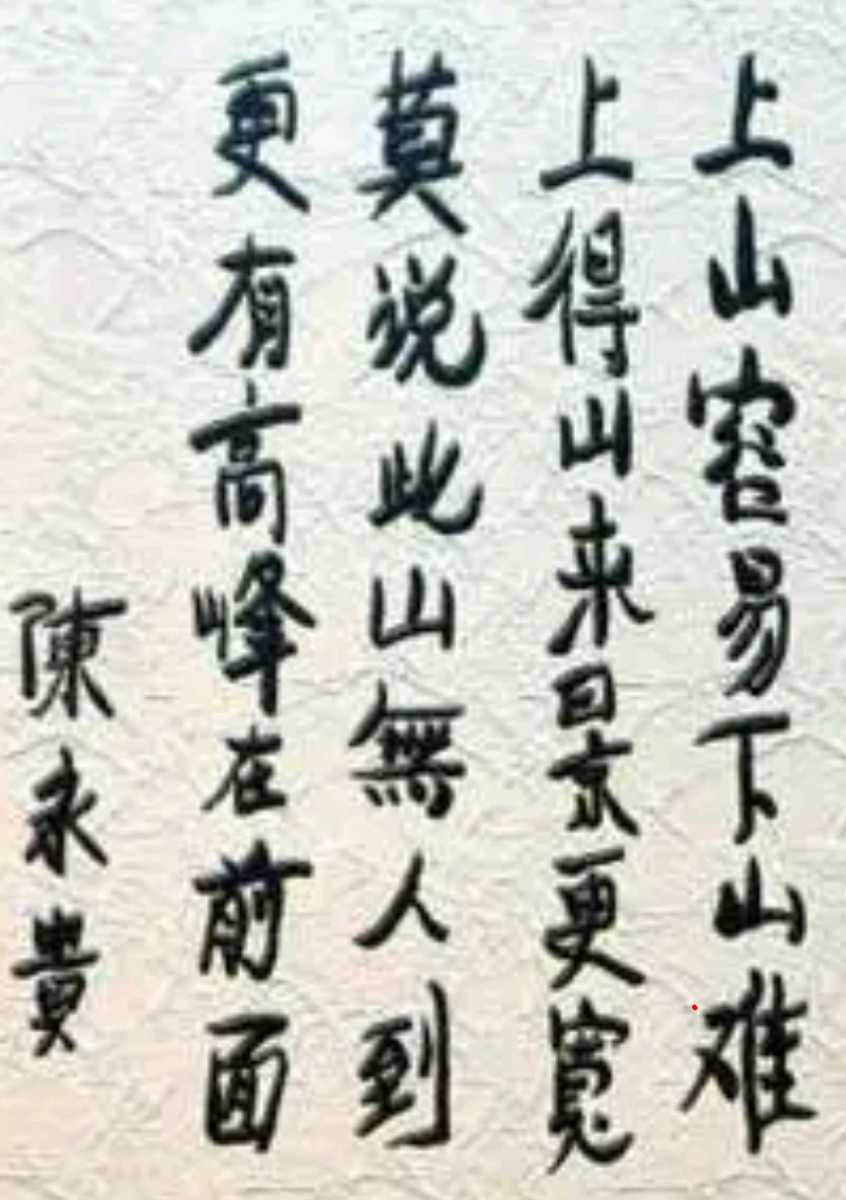 上山容易下山难
上得山来景更寬
莫说此山無人到
更有高峰在前面
陳永貴